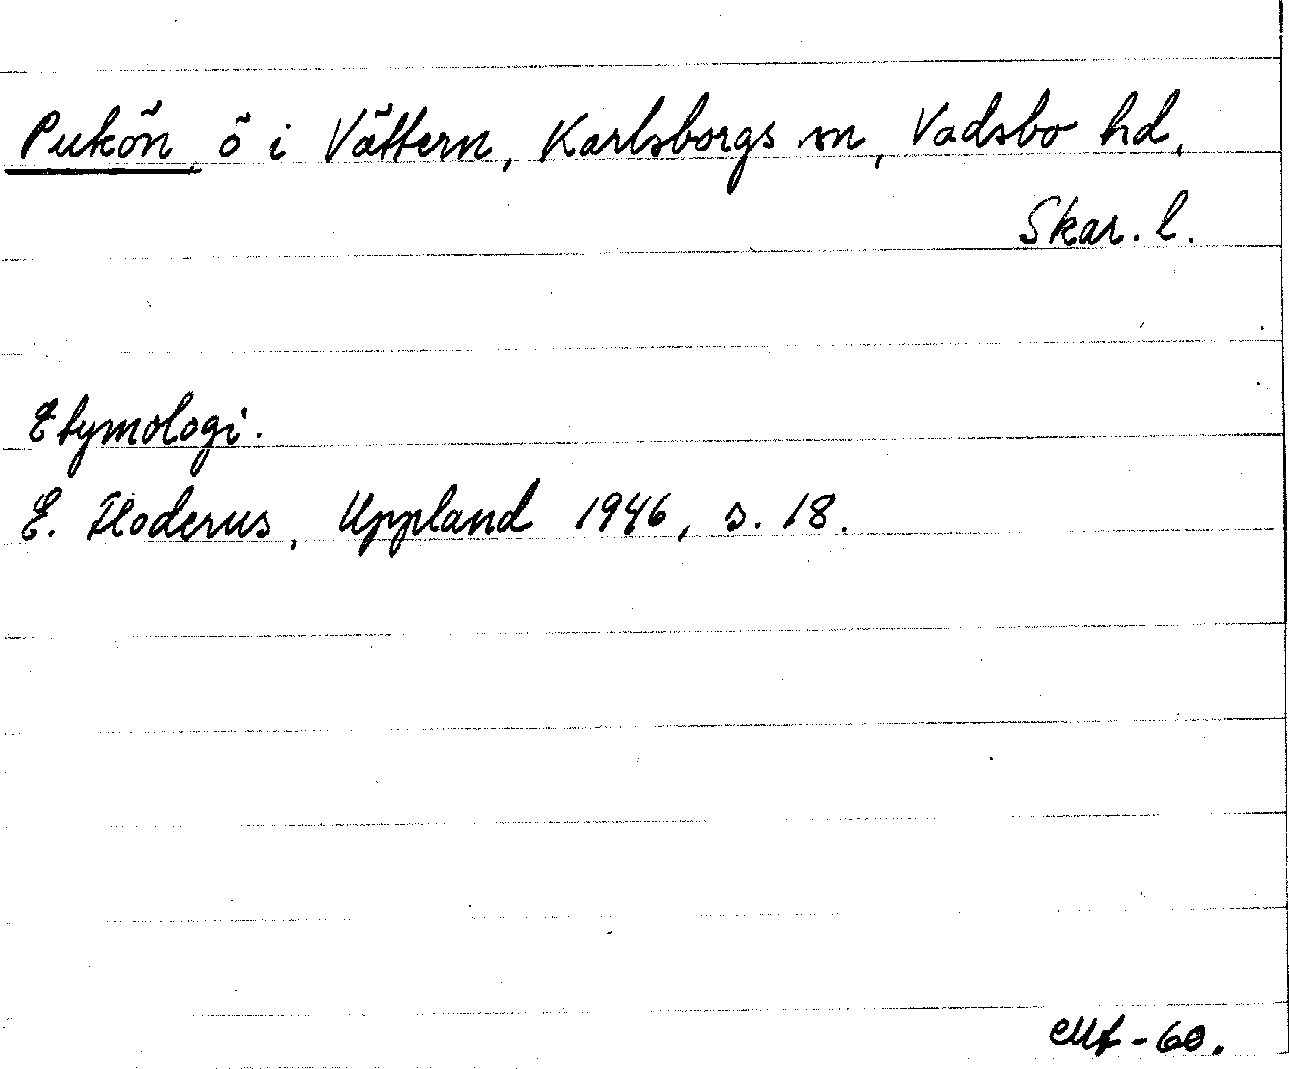 Pukön, ö i Vättern, Karlsborgs sn, Vadsbo hd,
Skar. l.
Etymologi.
E. Floderus, Uppland 1946, s. 18.
-60.